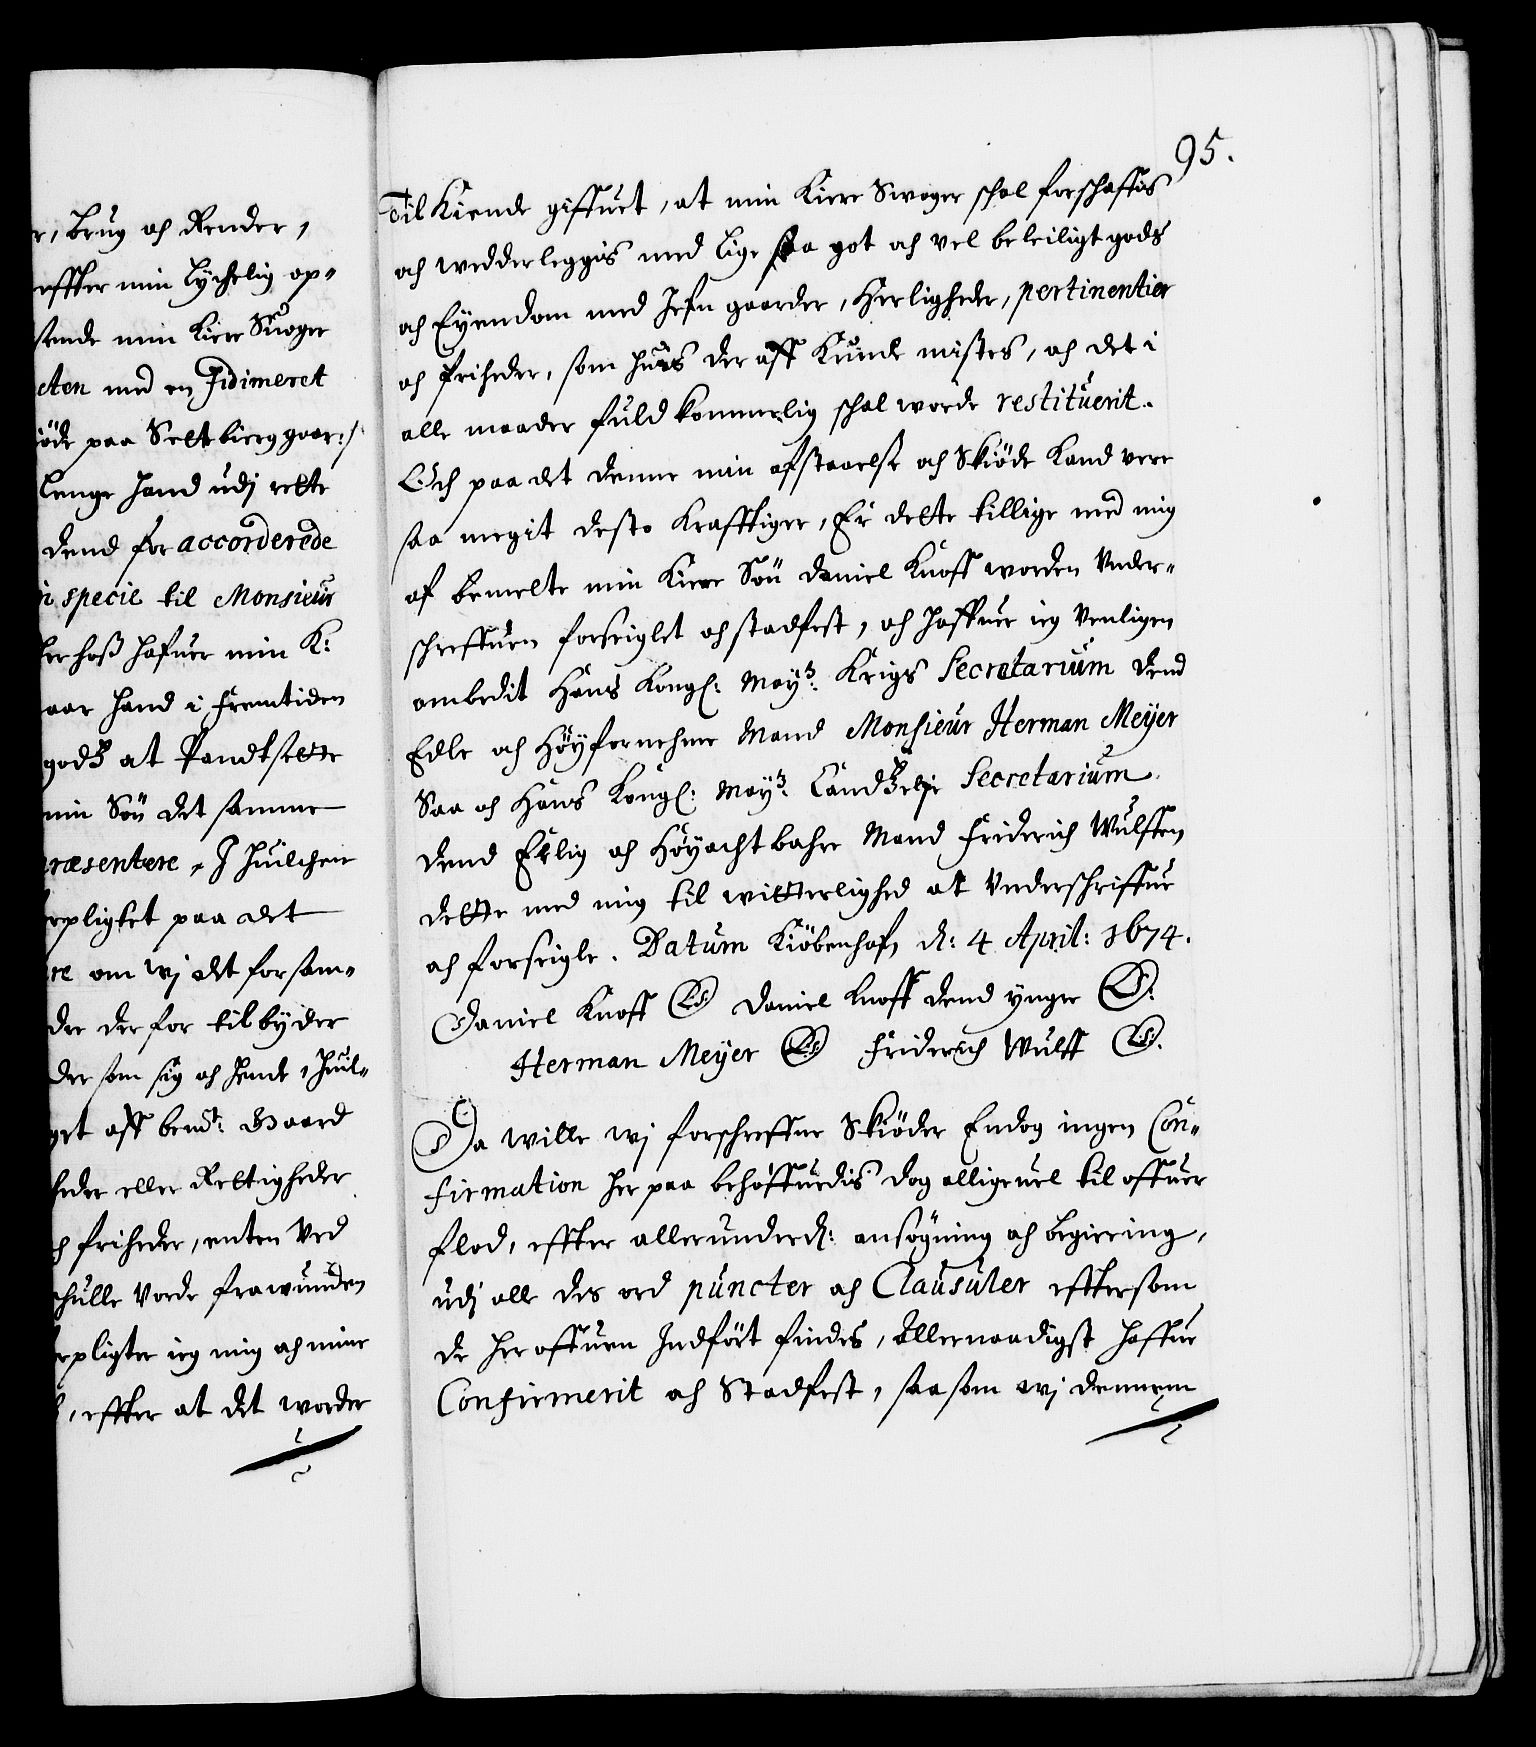 r, brug och Render,
effter min lychelig op-
sende min Kiere Suoger
cten med en Fidimeret
iöde paa Seltebierggaar:/
lenge hand udj rette
dend for accorderede
i specie til Monsieur
her hoß hafuer min K:
aar hand i fremtiden
godß at Pandtsette
min Sön det samme
ræsentere, J huilchen
rpligtet paa det
re om wj det forsam-
der der for tilbyder
der som sig och hende, huil-
get aff bemt: Gaard
heder eller Rettigheder
ch friheder, enten ved
schulle vorde frawunden
rpligter ieg mig och mine
, effter at det worder
95.
Til Kiende giffuet, at min Kiere Swoger schal forschaffis
och wedderleggis med lige saa got och vel beleiligt gods
och Eyendom med Jefn gaarder, Herligheder, pertinentier
och friheder, som huis der aff Kunde mistes, och det i
alle maader fuldkommelig schal worde restituerit.
Och paa det denne min afstaaelse och Skiöde kand vere
saa megit desto krafftiger, Er dette tillige med mig
af bemelte min Kiere Sön Daniel Knoff worden Under-
schreffuen forseiglet och stadfest, och haffuer ieg venligen
ombedit Hans Kongl: Mayts: Krigs Secretarium dend
Edle och Höyfornehme Mand Monsieur Herman Meyer
Saa och Hans Kongl: Mayts: Candzelje Secretarium
dend Erlig och Höyachtbahre Mand Friderich Wulffen
dette med mig til witterlighed at Underschriffue
och forseigle. Datum Kiöbenhafn d: 4 April: 1674.
Daniel Knoff LS Daniel Knoff dend ynger LS:
Herman Meyer LS Friderich Wulff LS.
Da wille wj forschreffne Skiöder Endog ingen Con-
firmation her paa behöffuedis dog alligeuel til offuer
flod, effter allerunderd: ansögning och begiering,
udj alle des ord puncter och Clausuler effter som
de her offuen Indfört findes, Allernaadigst haffue
Confirmerit och Stadfest, saa som wj dennem